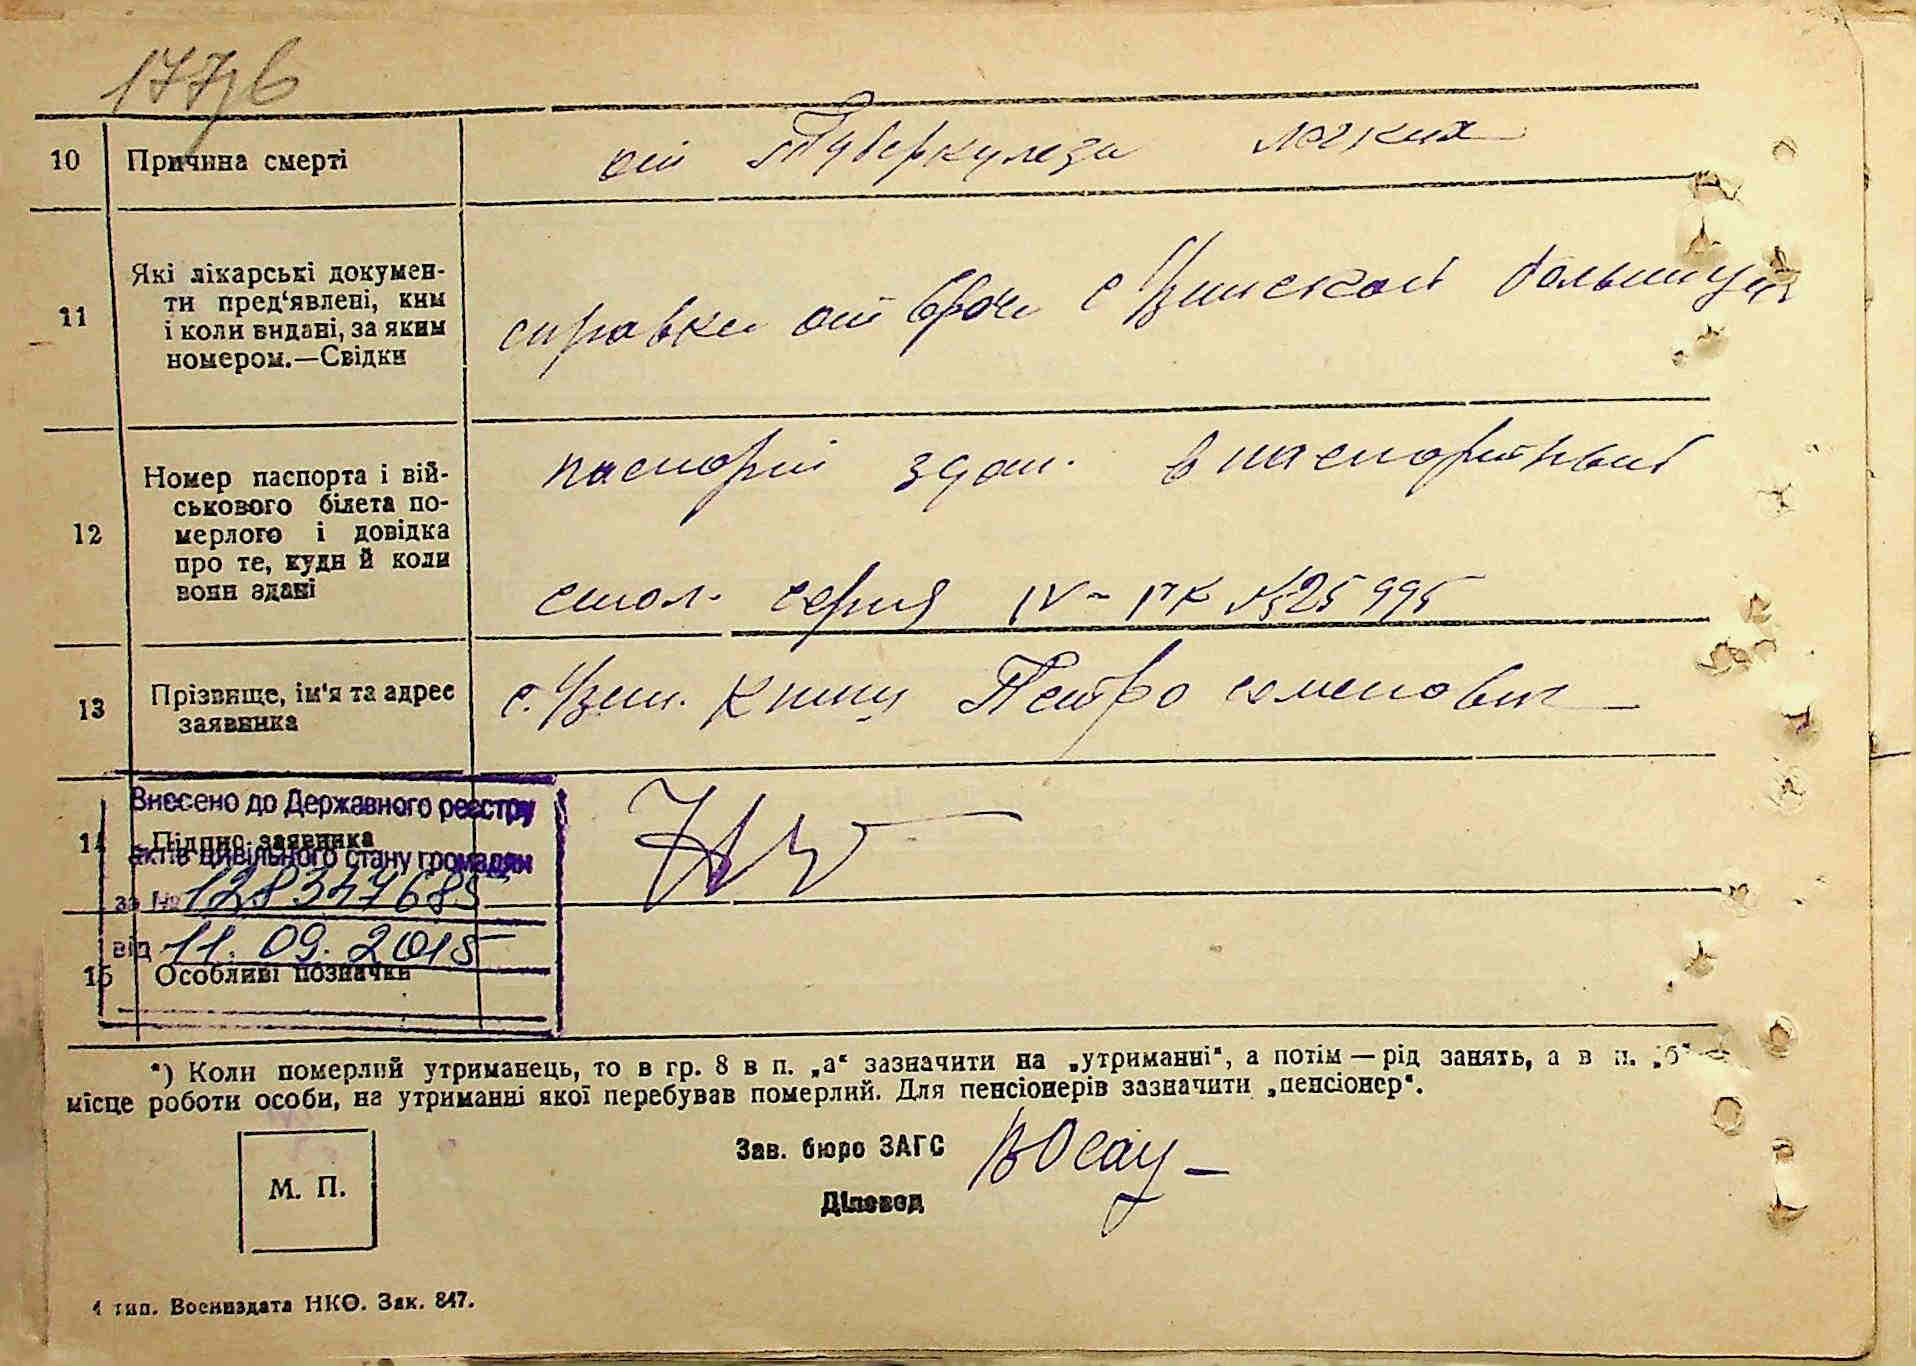 177
10 Причина смерті от туберкулеза легких
11 Які лікарські докумен-
ти пред'явлені, ким
і коли видані, за яким
номером.—Свідки
справка от врача с Узинской больницы
12 Номер паспорта і вій-
ськового білета по-
мерлого і довідка
про те, куди й коли
вони здані
паспорт здан. в паспортный
стол. серия IV-ГК №25995
13 Прізвище, ім'я та адрес
заявника
с. Узин. Книш Петро семенович
14 Підпис заявника
Внесено до Державного реєстру
актів цивільного стану громадян
за № 128347685
від 11.09.2015
15 Особливі позначки
*) Коли померлий утриманець, то в гр. 8 в п. „а“ зазначити на „утриманні“, а потім — рід занять, а в п. „б“
місце роботи особи, на утриманні якої перебував померлий. Для пенсіонерів зазначити „пенсіонер“.
Зав. бюро ЗАГС
Діловод
М. П.
1 тип. Воениздата НКО. Зак. 847.